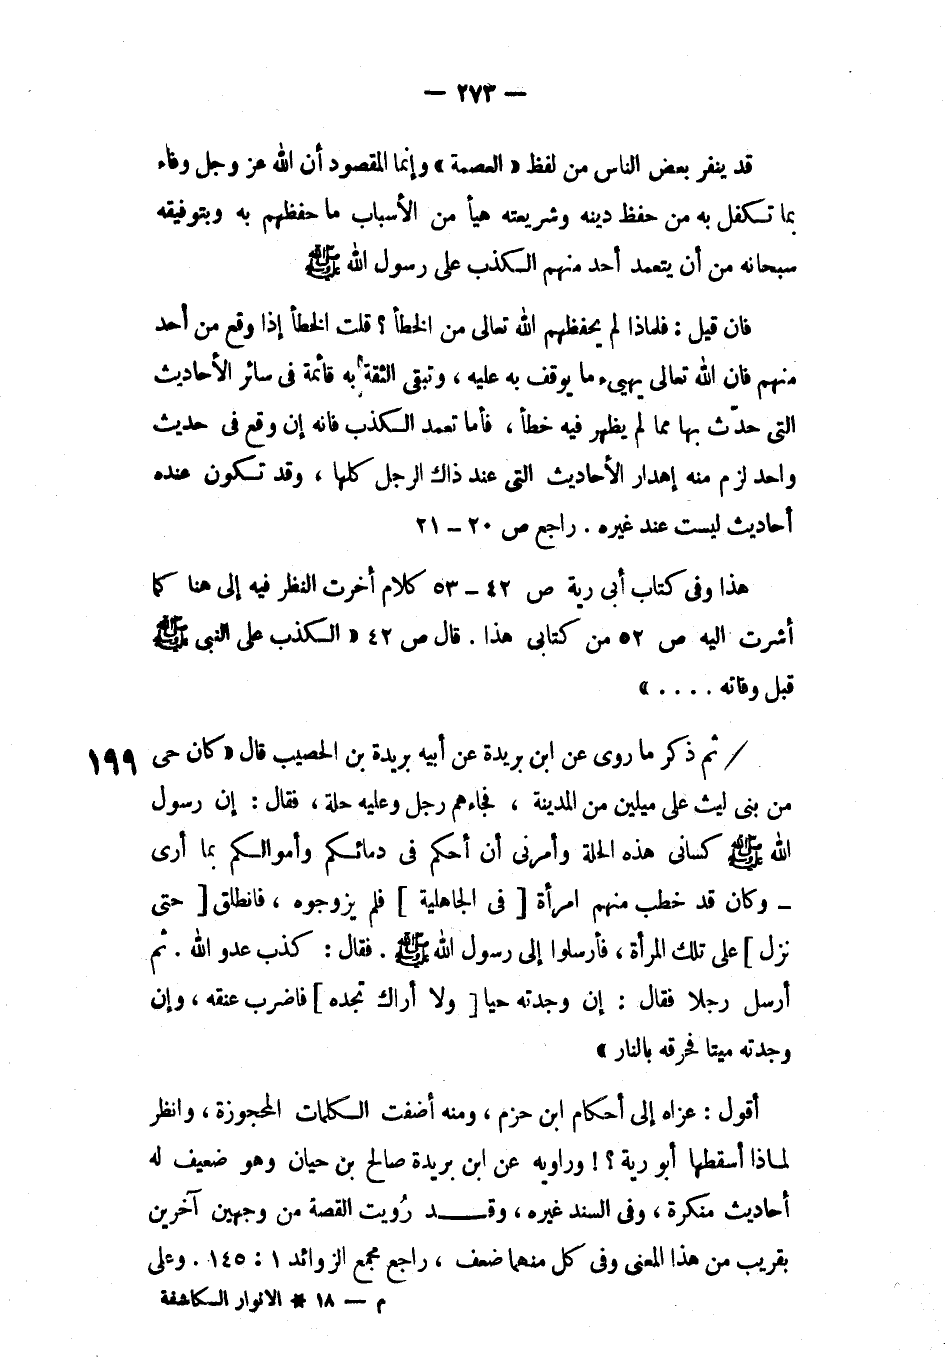 — ٢٧٣ —
قد ينفر بعض الناس من لفظ « العصمة » وإنما المقصود أن الله عز وجل وفاء
بما تكفل به من حفظ دينه وشريعته هيأ من الأسباب ما حفظهم به وبتوفيقه
سبحانه من أن يتعمد أحد منهم الكذب على رسول الله ﷺ
فان قيل : فلماذا لم يحفظهم الله تعالى من الخطأ ؟ قلت الخطأ إذا وقع من أحد
منهم فان الله تعالى يهيىء ما يوقف به عليه ، وتبقى الثقة به قائمة فى سائر الأحاديث
التى حدّث بها مما لم يظهر فيه خطأ ، فأما تعمد الكذب فانه إن وقع فى حديث
واحد لزم منه إهدار الأحاديث التى عند ذاك الرجل كلها ، وقد تكون عنده
أحاديث ليست عند غيره . راجع ص ٢٠ – ٢١
هذا وفى كتاب أبى رية ص ٤٢ – ٥٣ كلام أخرت النظر فيه إلى هنا كما
أشرت اليه ص ٥٢ من كتابى هذا . قال ص ٤٢ « الكذب على النبى ﷺ
قبل وفاته . . . . »
/ ثم ذكر ما روى عن ابن بريدة عن أبيه بريدة بن الحصيب قال « كان حى ١٩٩
من بنى ليث على ميلين من المدينة ، فجاءهم رجل وعليه حلة ، فقال : إن رسول
الله ﷺ كسانى هذه الحلة وأمرنى أن أحكم فى دمائكم وأموالكم بما أرى
– وكان قد خطب منهم امرأة [ فى الجاهلية ] فلم يزوجوه ، فانطلق [ حتى
نزل ] على تلك المرأة ، فأرسلوا إلى رسول الله ﷺ . فقال : كذب عدو الله . ثم
أرسل رجلا فقال : إن وجدته حيا [ ولا أراك تجده ] فاضرب عنقه ، وإن
وجدته ميتا فحرقه بالنار »
أقول : عزاه إلى أحكام ابن حزم ، ومنه أضفت الكلمات المحجوزة ، وانظر
لماذا أسقطها أبو رية ؟ ! وراويه عن ابن بريدة صالح بن حيان وهو ضعيف له
أحاديث منكرة ، وفى السند غيره ، وقد رُويت القصة من وجهين آخرين
بقريب من هذا المعنى وفى كل منهما ضعف ، راجع مجمع الزوائد ١ : ١٤٥ . وعلى
م — ١٨ * الانوار الكاشفة